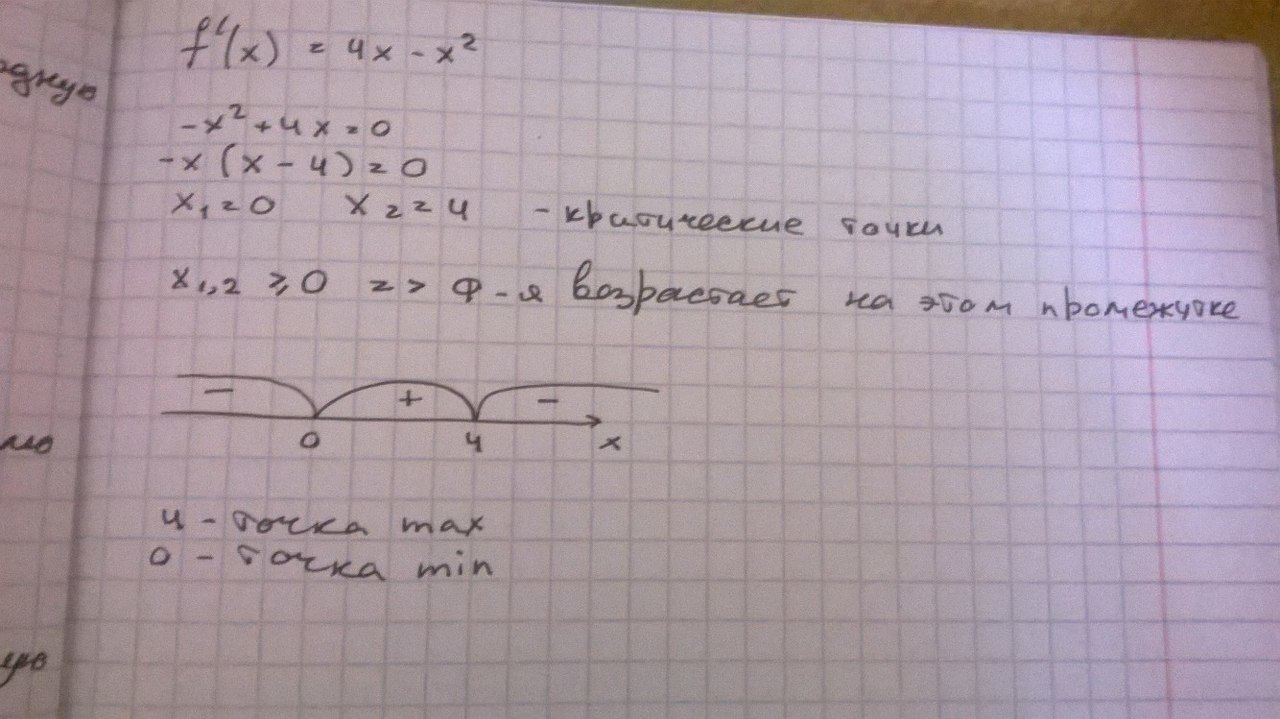 f'(x) = 4x - x²
одную
-x² + 4x = 0
-x (x - 4) = 0
x₁ = 0 x₂ = 4 - критические точки
x₁,₂ ⩾ 0 => ф-я возрастает на этом промежутке
- + -
0 4 x
4 - точка max
0 - точка min